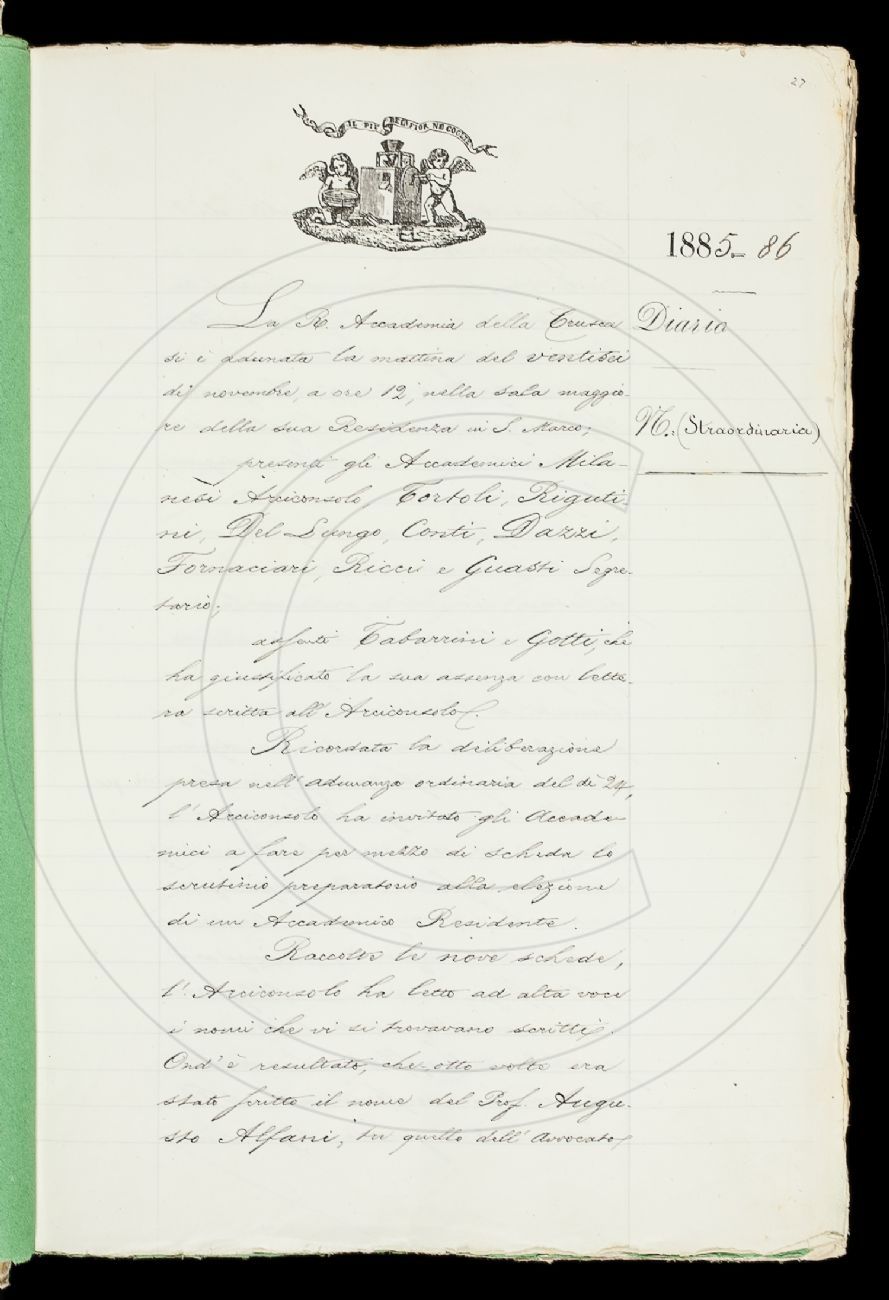 27
IL PIÙ BEL FIOR NE COGLIE
1885-86
Diario
N. (Straordinaria)
La R. Accademia della Crusca
si è adunata la mattina del ventisei
di novembre, a ore 12, nella sala maggio-
re della sua Residenza in S. Marco;
presenti gli Accademici Mila-
nesi Arciconsolo, Tortoli, Riguti-
ni, Del Lungo, Conti, Dazzi,
Fornaciari, Ricci e Guasti Segre-
tario;
assenti Tabarrini e Gotti, che
ha giustificato la sua assenza con lette-
ra scritta all'Arciconsolo.
Ricordata la deliberazione
presa nell'adunanza ordinaria del dì 24,
l'Arciconsolo ha invitato gli Accade-
mici a fare per mezzo di scheda lo
scrutinio preparatorio alla elezione
di un Accademico Residente.
Raccolte le nove schede,
l'Arciconsolo ha letto ad alta voce
i nomi che vi si trovavano scritti.
Ond'è resultato, che otto volte era
stato scritto il nome del Prof. Augu-
sto Alfani, tre quello dell'Avvocato